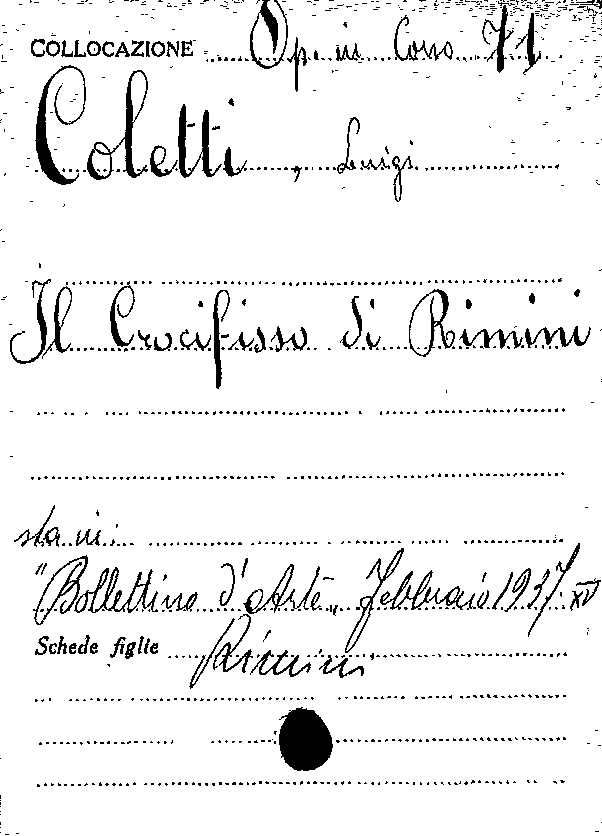 COLLOCAZIONE Op. in Corso 71
Coletti, Luigi
Il Crocifisso di Rimini
sta in:
"Bollettino d'Arte„ Febbraio 1937. XV
Schede figlie Rimini